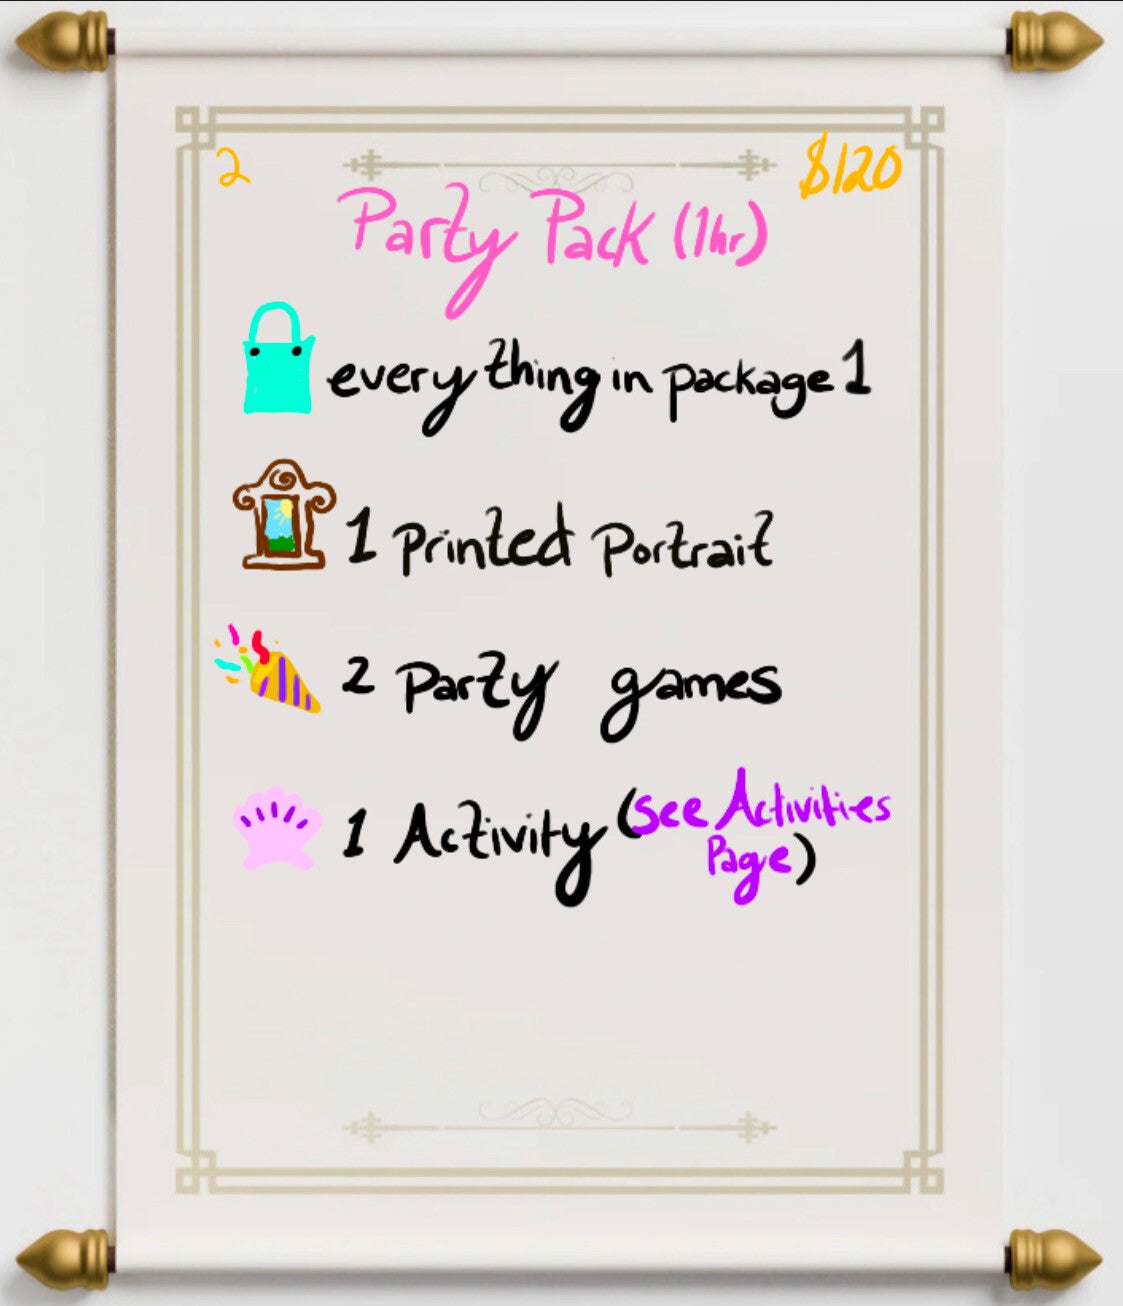 2
$120
Party Pack (1hr)
everything in package 1
1 Printed Portrait
2 Party games
1 Activity (see Activities
Page)